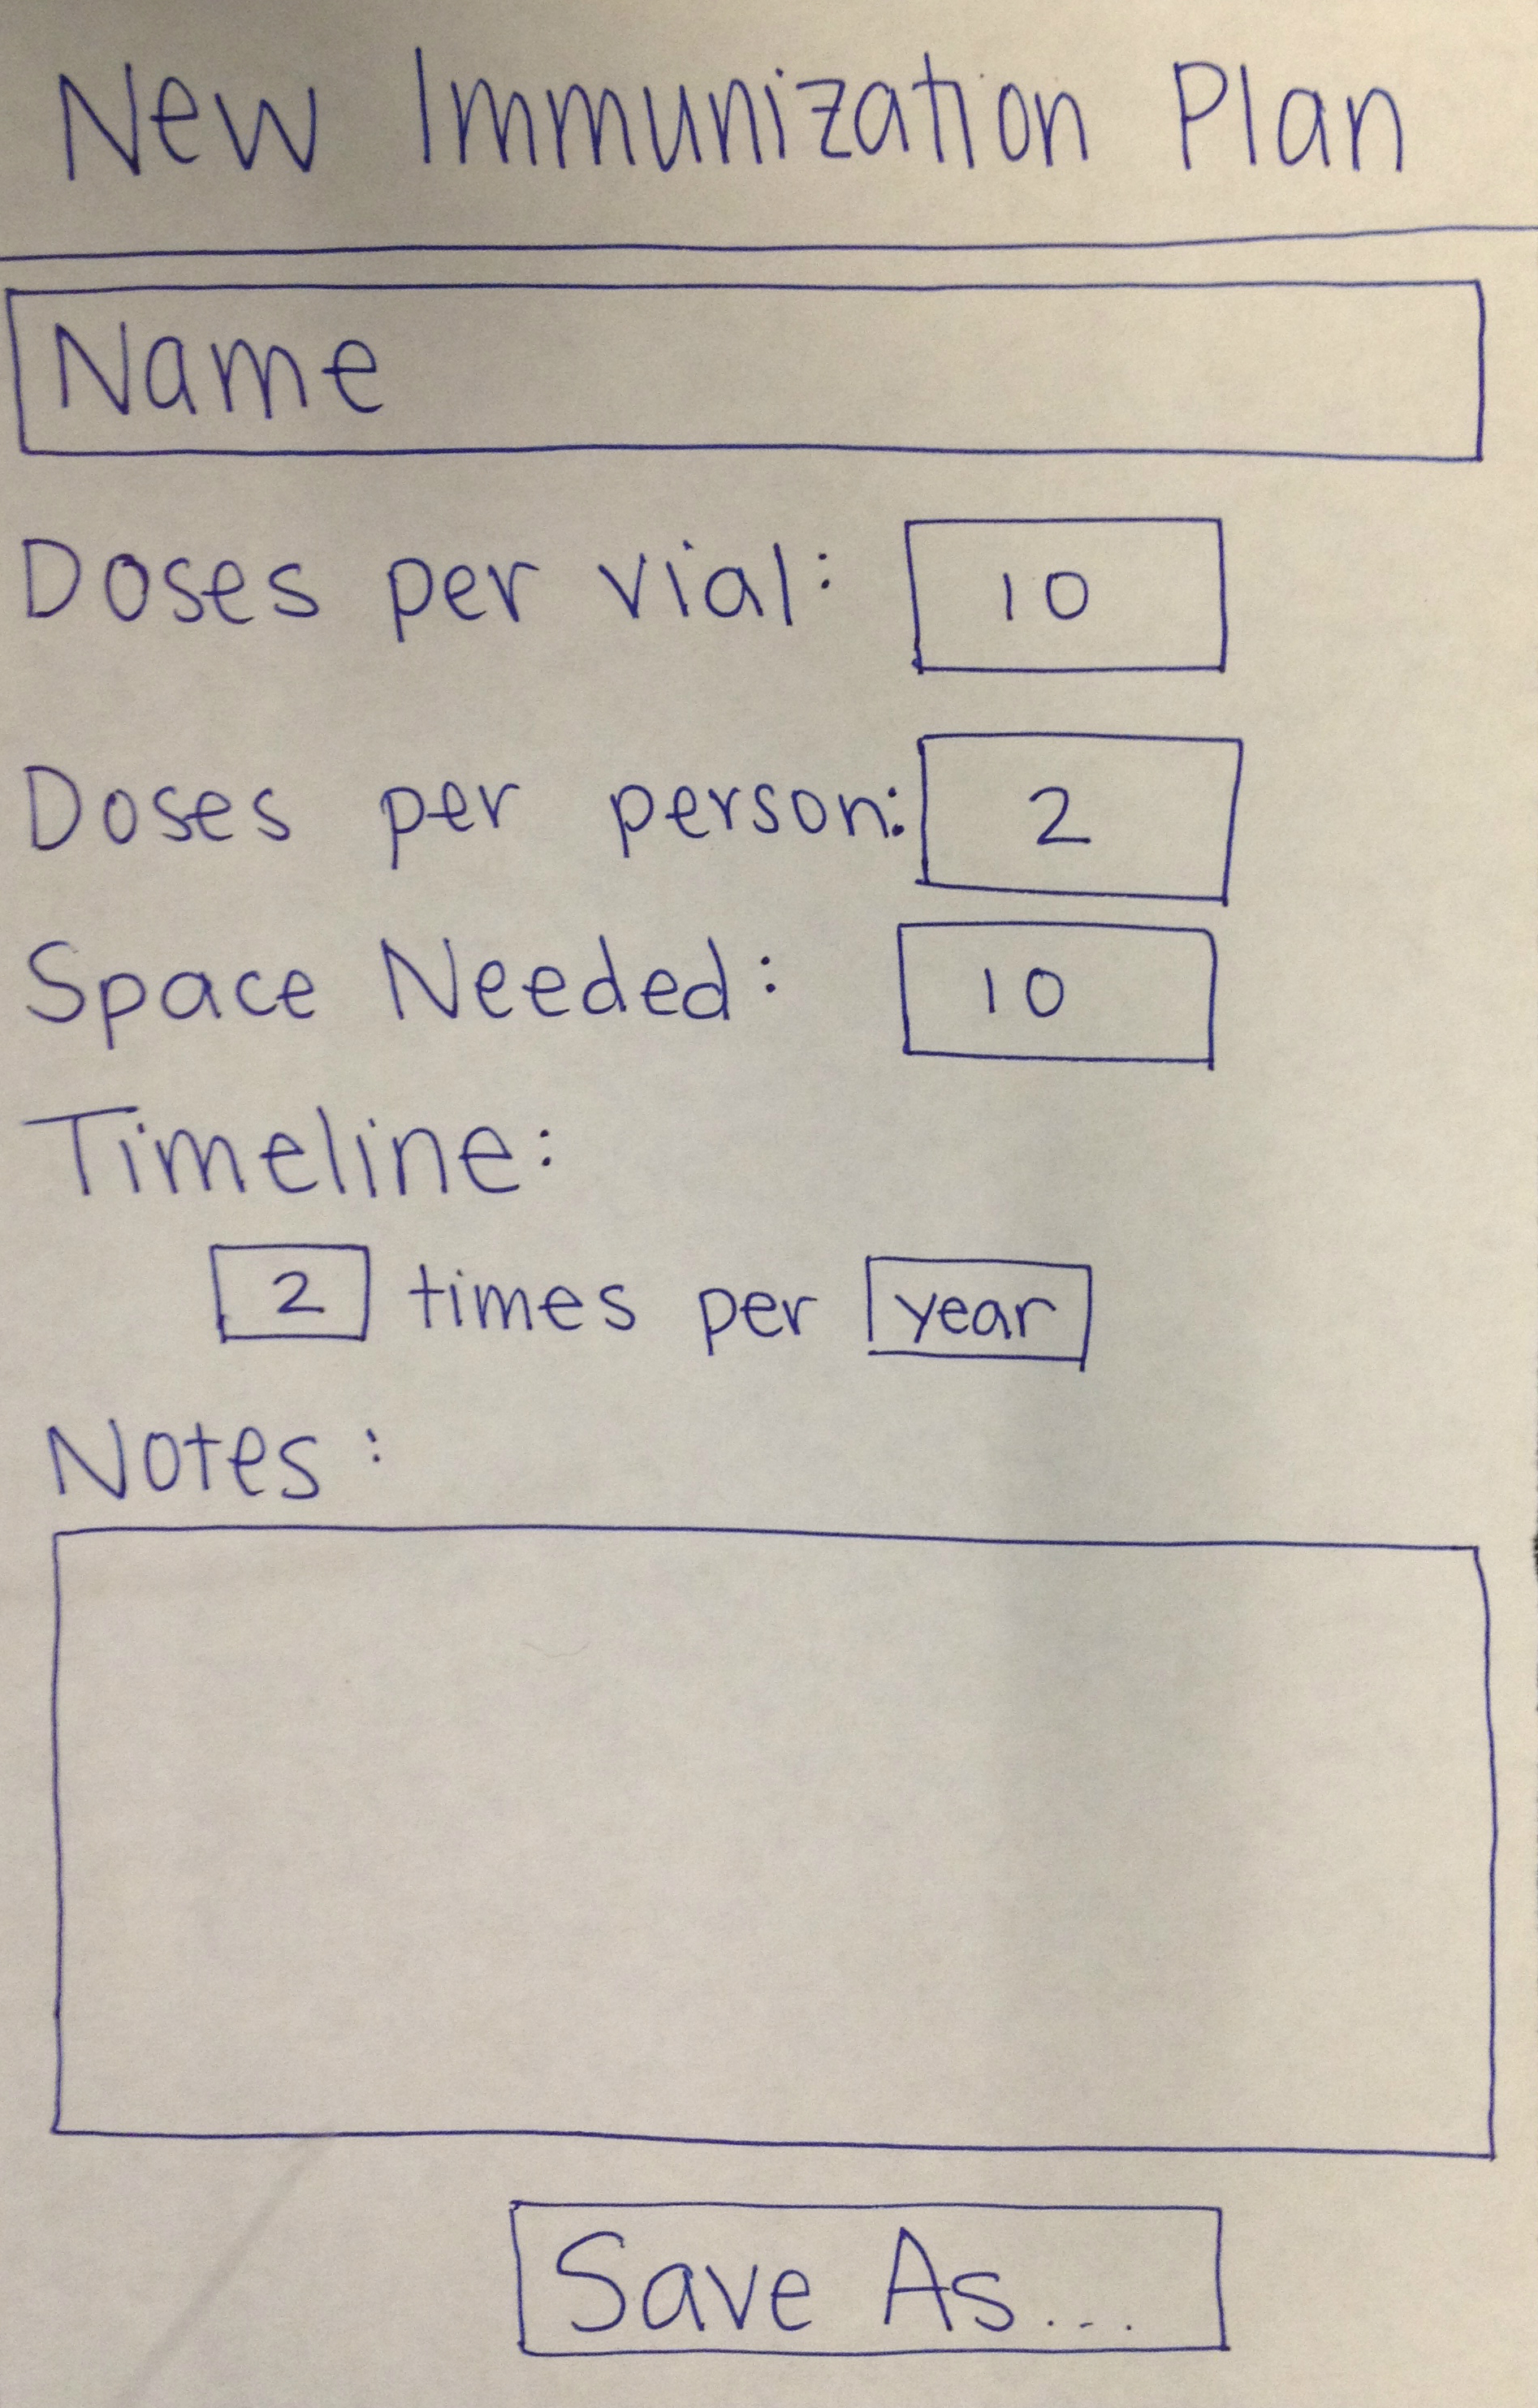 New Immunization Plan
Name
Doses per vial: 10
Doses per person: 2
Space Needed: 10
Timeline:
2 times per year
Notes:
Save As...